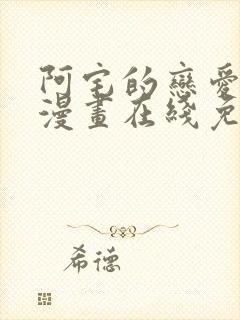 阿宅的戀愛
漫畫在綫免
希德